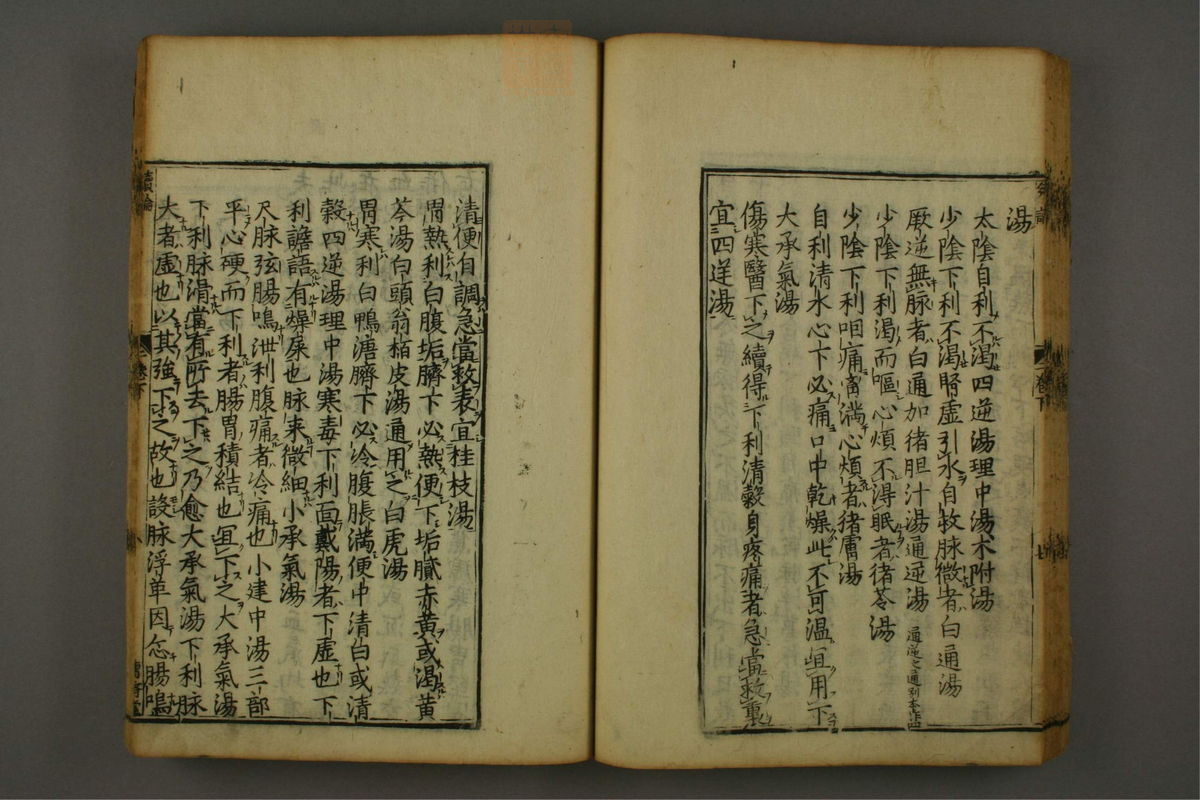 湯
太陰自利不渴四逆湯理中湯朮附湯
少陰下利不渴腎虛引水自救脉微者白通湯
厥逆無脉者白通加猪胆汁湯通逆湯通逆之通別本作四
少陰下利渴而嘔心煩不得眠者猪苓湯
少陰下利咽痛胷満心煩者猪膚湯
自利清水心下必痛口中乾燥此不可温宜用下
大承氣湯
傷寒醫下之續得下利清穀身疼痛者急當救裏
宜四逆湯
卷下
七
清便自調急當救表宜桂枝湯
胃熱利白腹垢臍下必熱便下垢膩赤黄或渴黄
芩湯白頭翁栢皮湯通用之白虎湯
胃寒利白鴨溏臍下必冷腹脹満便中清白或清
穀四逆湯理中湯寒毒下利面戴陽者下虛也下
利譫語有燥屎也脉来微細小承氣湯
尺脉弦腸鳴泄利腹痛者冷痛也小建中湯三部
平心硬而下利者腸胃積結也宜下之大承氣湯
下利脉滑當有所去下之乃愈大承氣湯下利脉
大者虛也以其強下之故也設脉浮革因尓腸鳴
續論
卷下